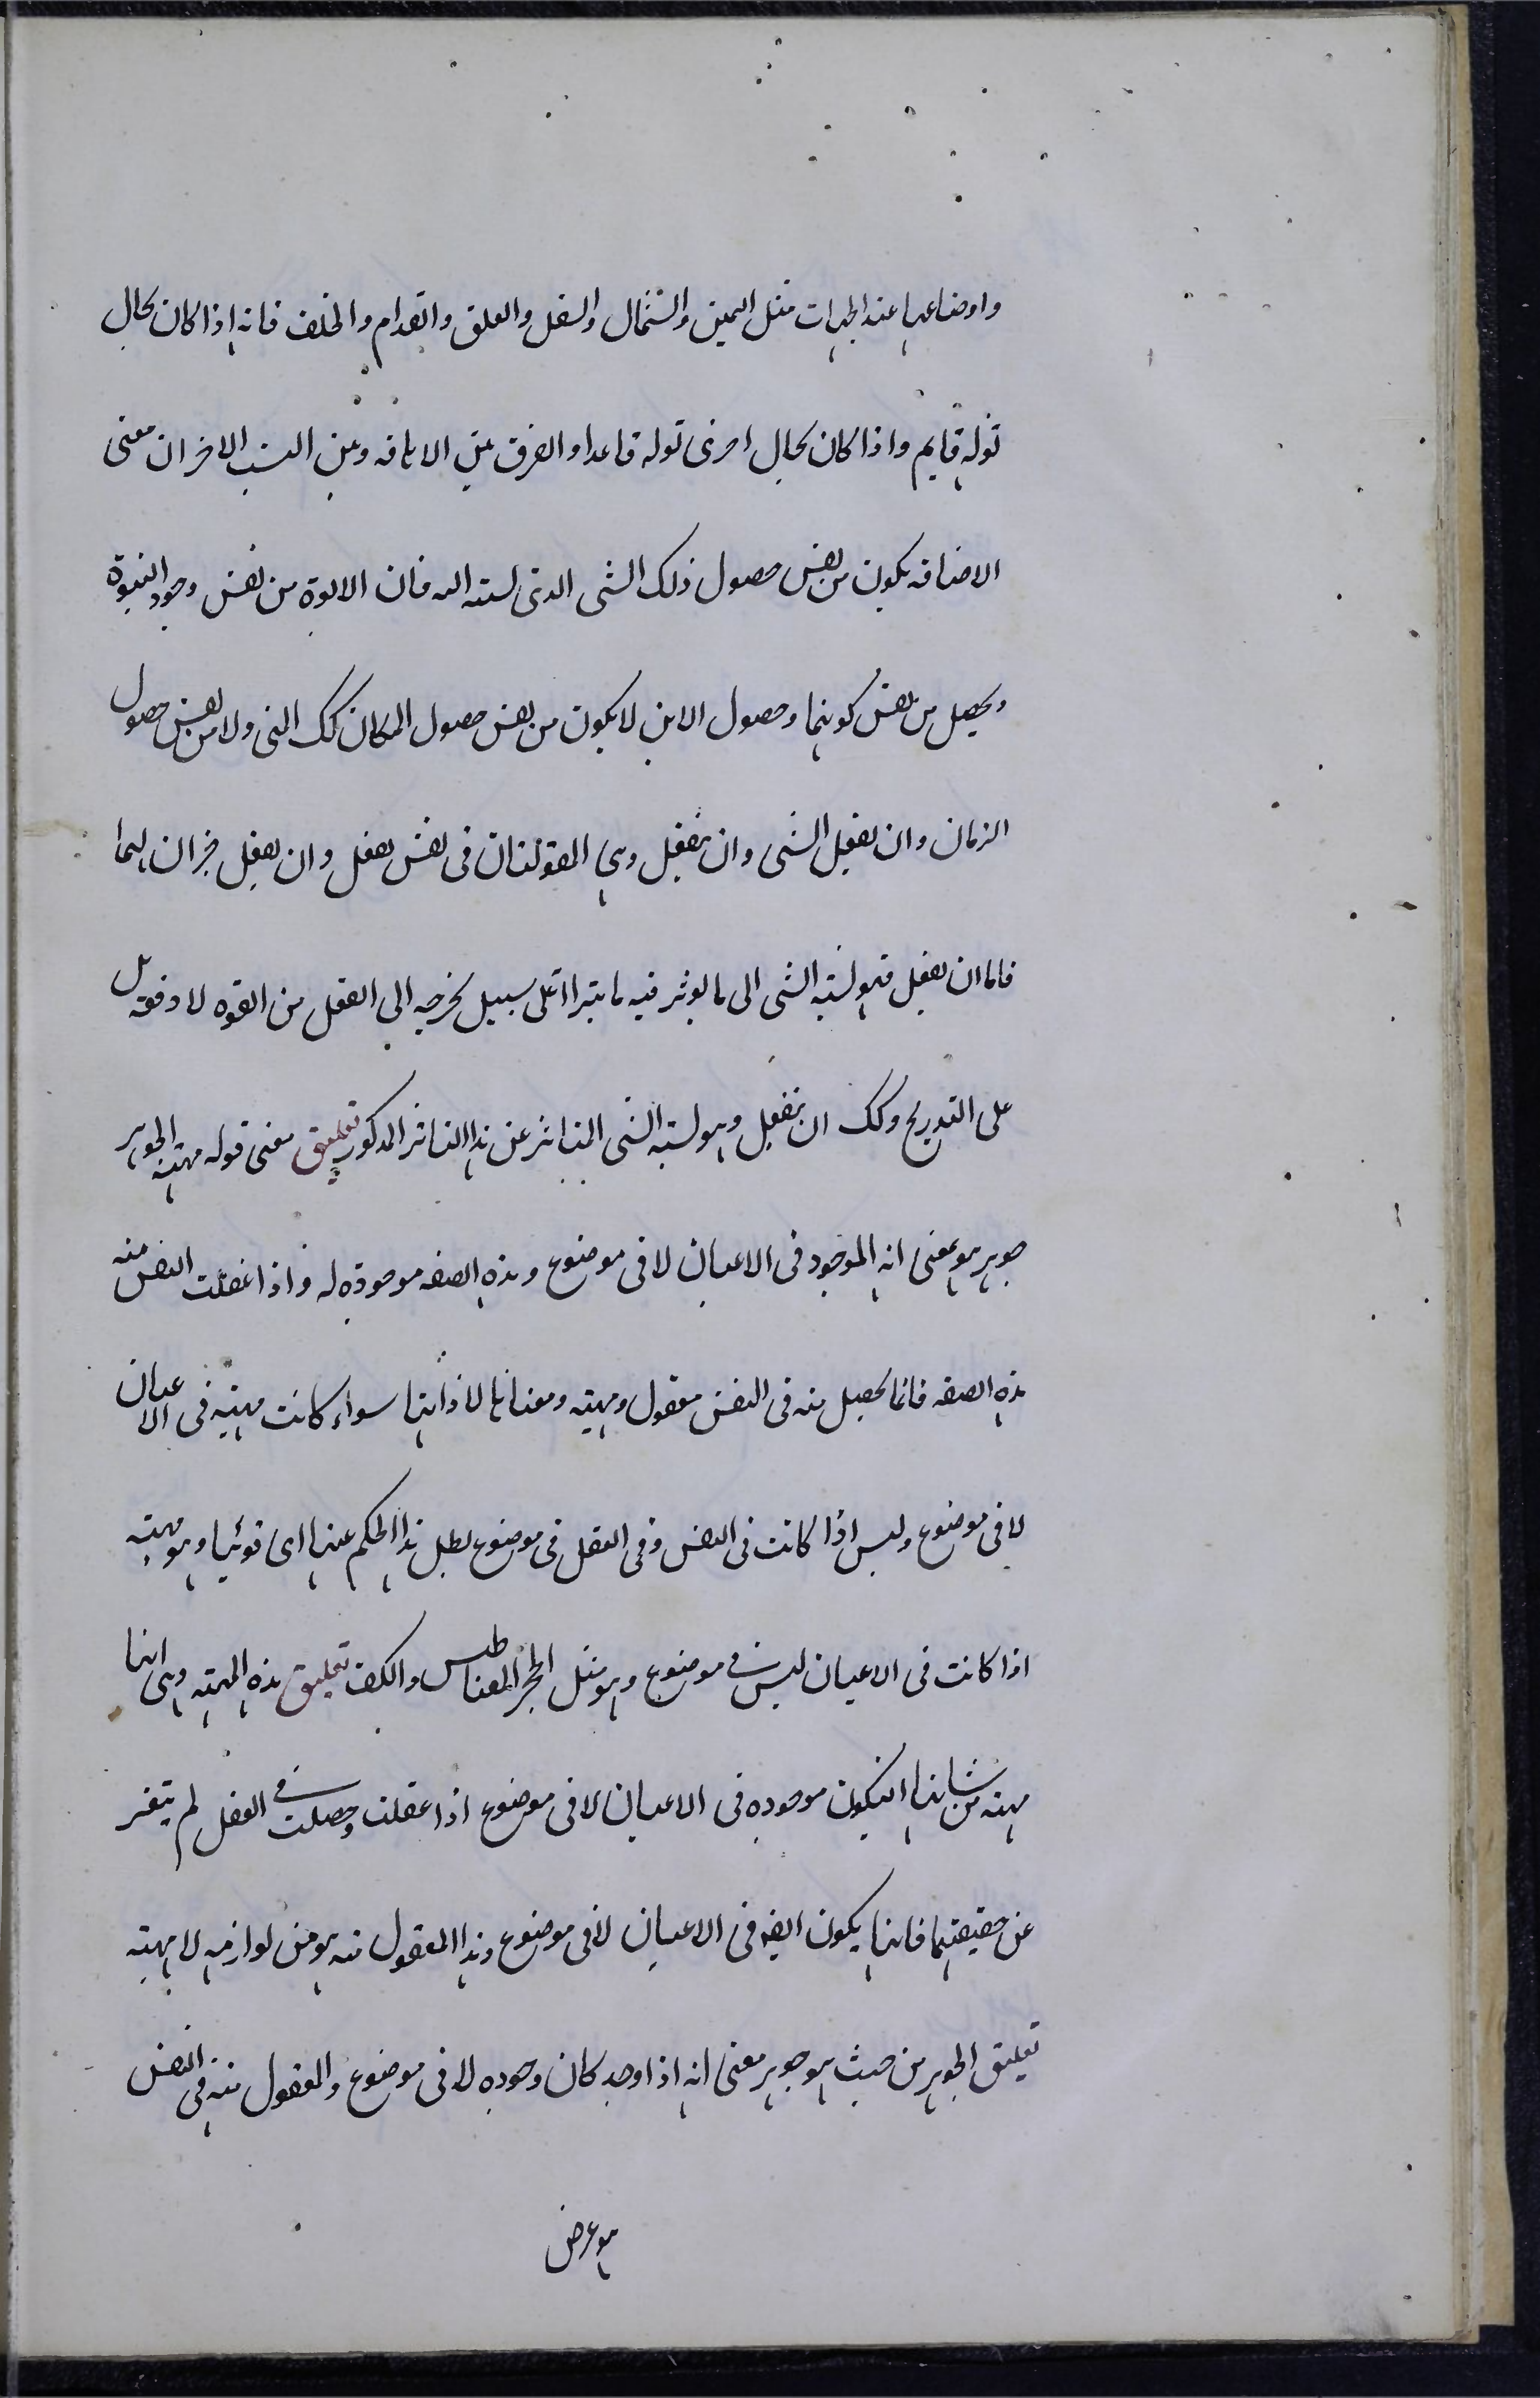 واوضاعها عند الجهات مثل اليمين والشمال والسفل والعلو والقدام والخلف فانه اذا كان بحال
تولد قايم واذا كان بحال اخرى تولد قاعدا والفرق بين الاضافه وبين النسب الاخر ان معنى
الاضافه يكون من نفس حصول ذلك الشى الذى نسبته اليه فان الابوة من نفس وجود البنوة
ويحصل من نفس كونهما وحصول الاين لا يكون من نفس حصول المكان كك المتى ولا من نفس حصول
الزمان وان يفعل الشى وان ينفعل وهى المقولتان فى نفس يفعل وان يفعل
فاما ان يفعل فهو نسبة الشى الى ما يوثر فيه على سبيل يخرجه الى الفعل من القوه لا دفعة بل
على التدريج وكك ان ينفعل وهو نسبة الشى المتاثر عن هذا التاثر المذكور تعليق معنى قوله مهية الجوهر
جوهر هو بمعنى انه الموجود فى الاعيان لا فى موضوع وهذه الصفه موجوده له واذا عقلت النفس منه
هذه الصفه فانما يحصل منه فى النفس معقول ومهيته ومعناها لا ذاتها سواء كانت مهيته فى الاعيان
لا فى موضوع وليس اذا كانت فى النفس وفى العقل فى موضوع بطل هذا الحكم عنها اى قولنا وهو مهيته
اذا كانت فى الاعيان ليس فى موضوع وهو مثل الحجر المغناطيس والكف تعليق هذه المهية وهى انها
مهية من شانها ان يكون موجوده فى الاعيان لا فى موضوع اذا عقلت وحصلت فى العقل لم يتغير
عن حقيقتها فانها يكون ايضه فى الاعيان لا فى موضوع وهذا المعقول منه هو من لوازمه لا مهيته
تعليق الجوهر من حيث هو جوهر معنى انه اذا وجد كان وجوده لا فى موضوع والمعقول منه فى النفس
هو عرض